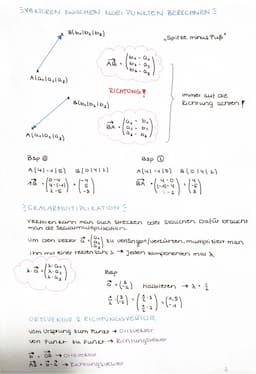 VEKTOREN ZWISCHEN ZWEI PUNKTEN BERECHNEN
B(b₁|b₂|b₃)
„Spitze minus Fuß"
A(a₁|a₂|a₃)
AB = (b₁ - a₁ b₂ - a₂ b₃ - a₃)
RICHTUNG!
immer auf die
Richtung achten!
B(b₁|b₂|b₃)
A(a₁|a₂|a₃)
BA = (a₁ - b₁ a₂ - b₂ a₃ - b₃)
Bsp ① Bsp ②
A(4|-1|5) B(0|4|2) A(4|-1|5) B(0|4|2)
SKALARMULTIPLIKATION
Vektoren kann man auch strecken oder stauchen. Dafür braucht
man die Skalarmultiplikation.
Um den Vektor a = (a₁ a₂ a₃) zu verlängern/verkürzen, multipliziert man
ihn mit einer reellen Zahl λ → jeden Komponenten mal λ
λ·a = (λ·a₁ λ·a₂ λ·a₃)
Bsp
halbieren → λ = ½
ORTSVEKTOR & RICHTUNGSVEKTOR
vom Ursprung zum Punkt → Ortsvektor
von Punkt zu Punkt → Richtungsvektor
a = OA → Ortsvektor
AB = b - a → Richtungsvektor